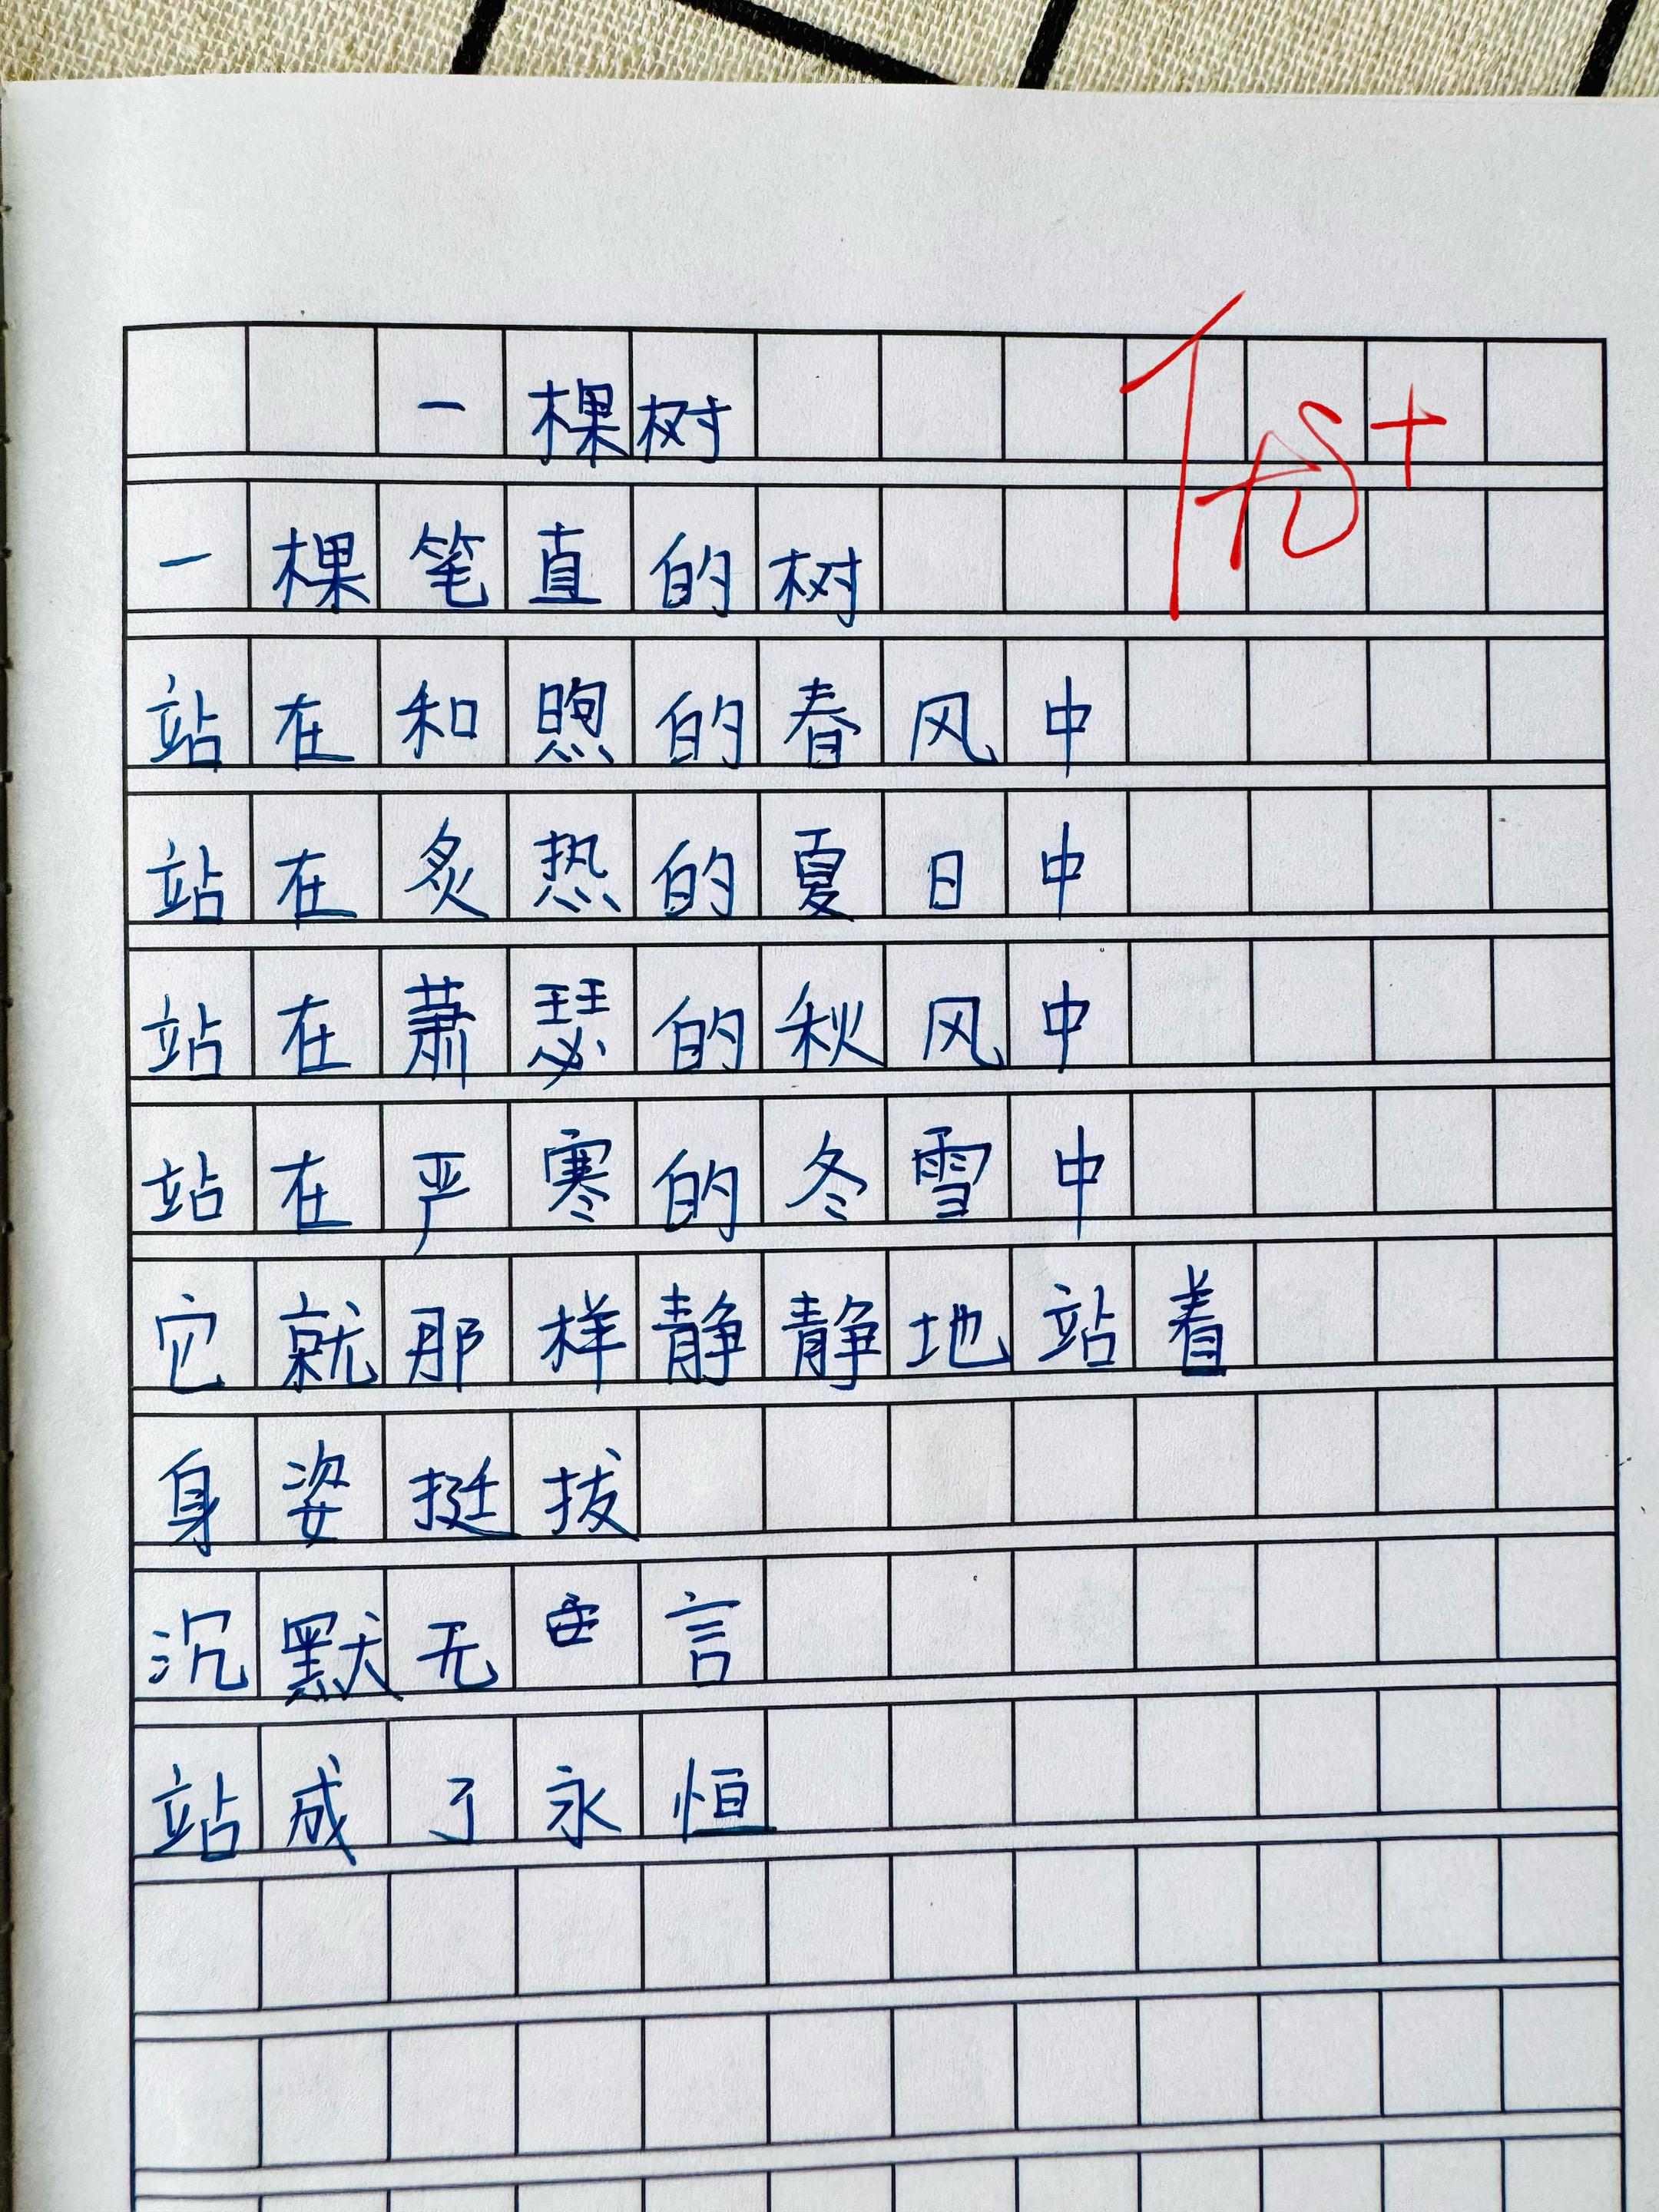 一棵树
优+
一棵笔直的树
站在和煦的春风中
站在炙热的夏日中
站在萧瑟的秋风中
站在严寒的冬雪中
它就那样静静地站着
身姿挺拔
沉默无言
站成了永恒